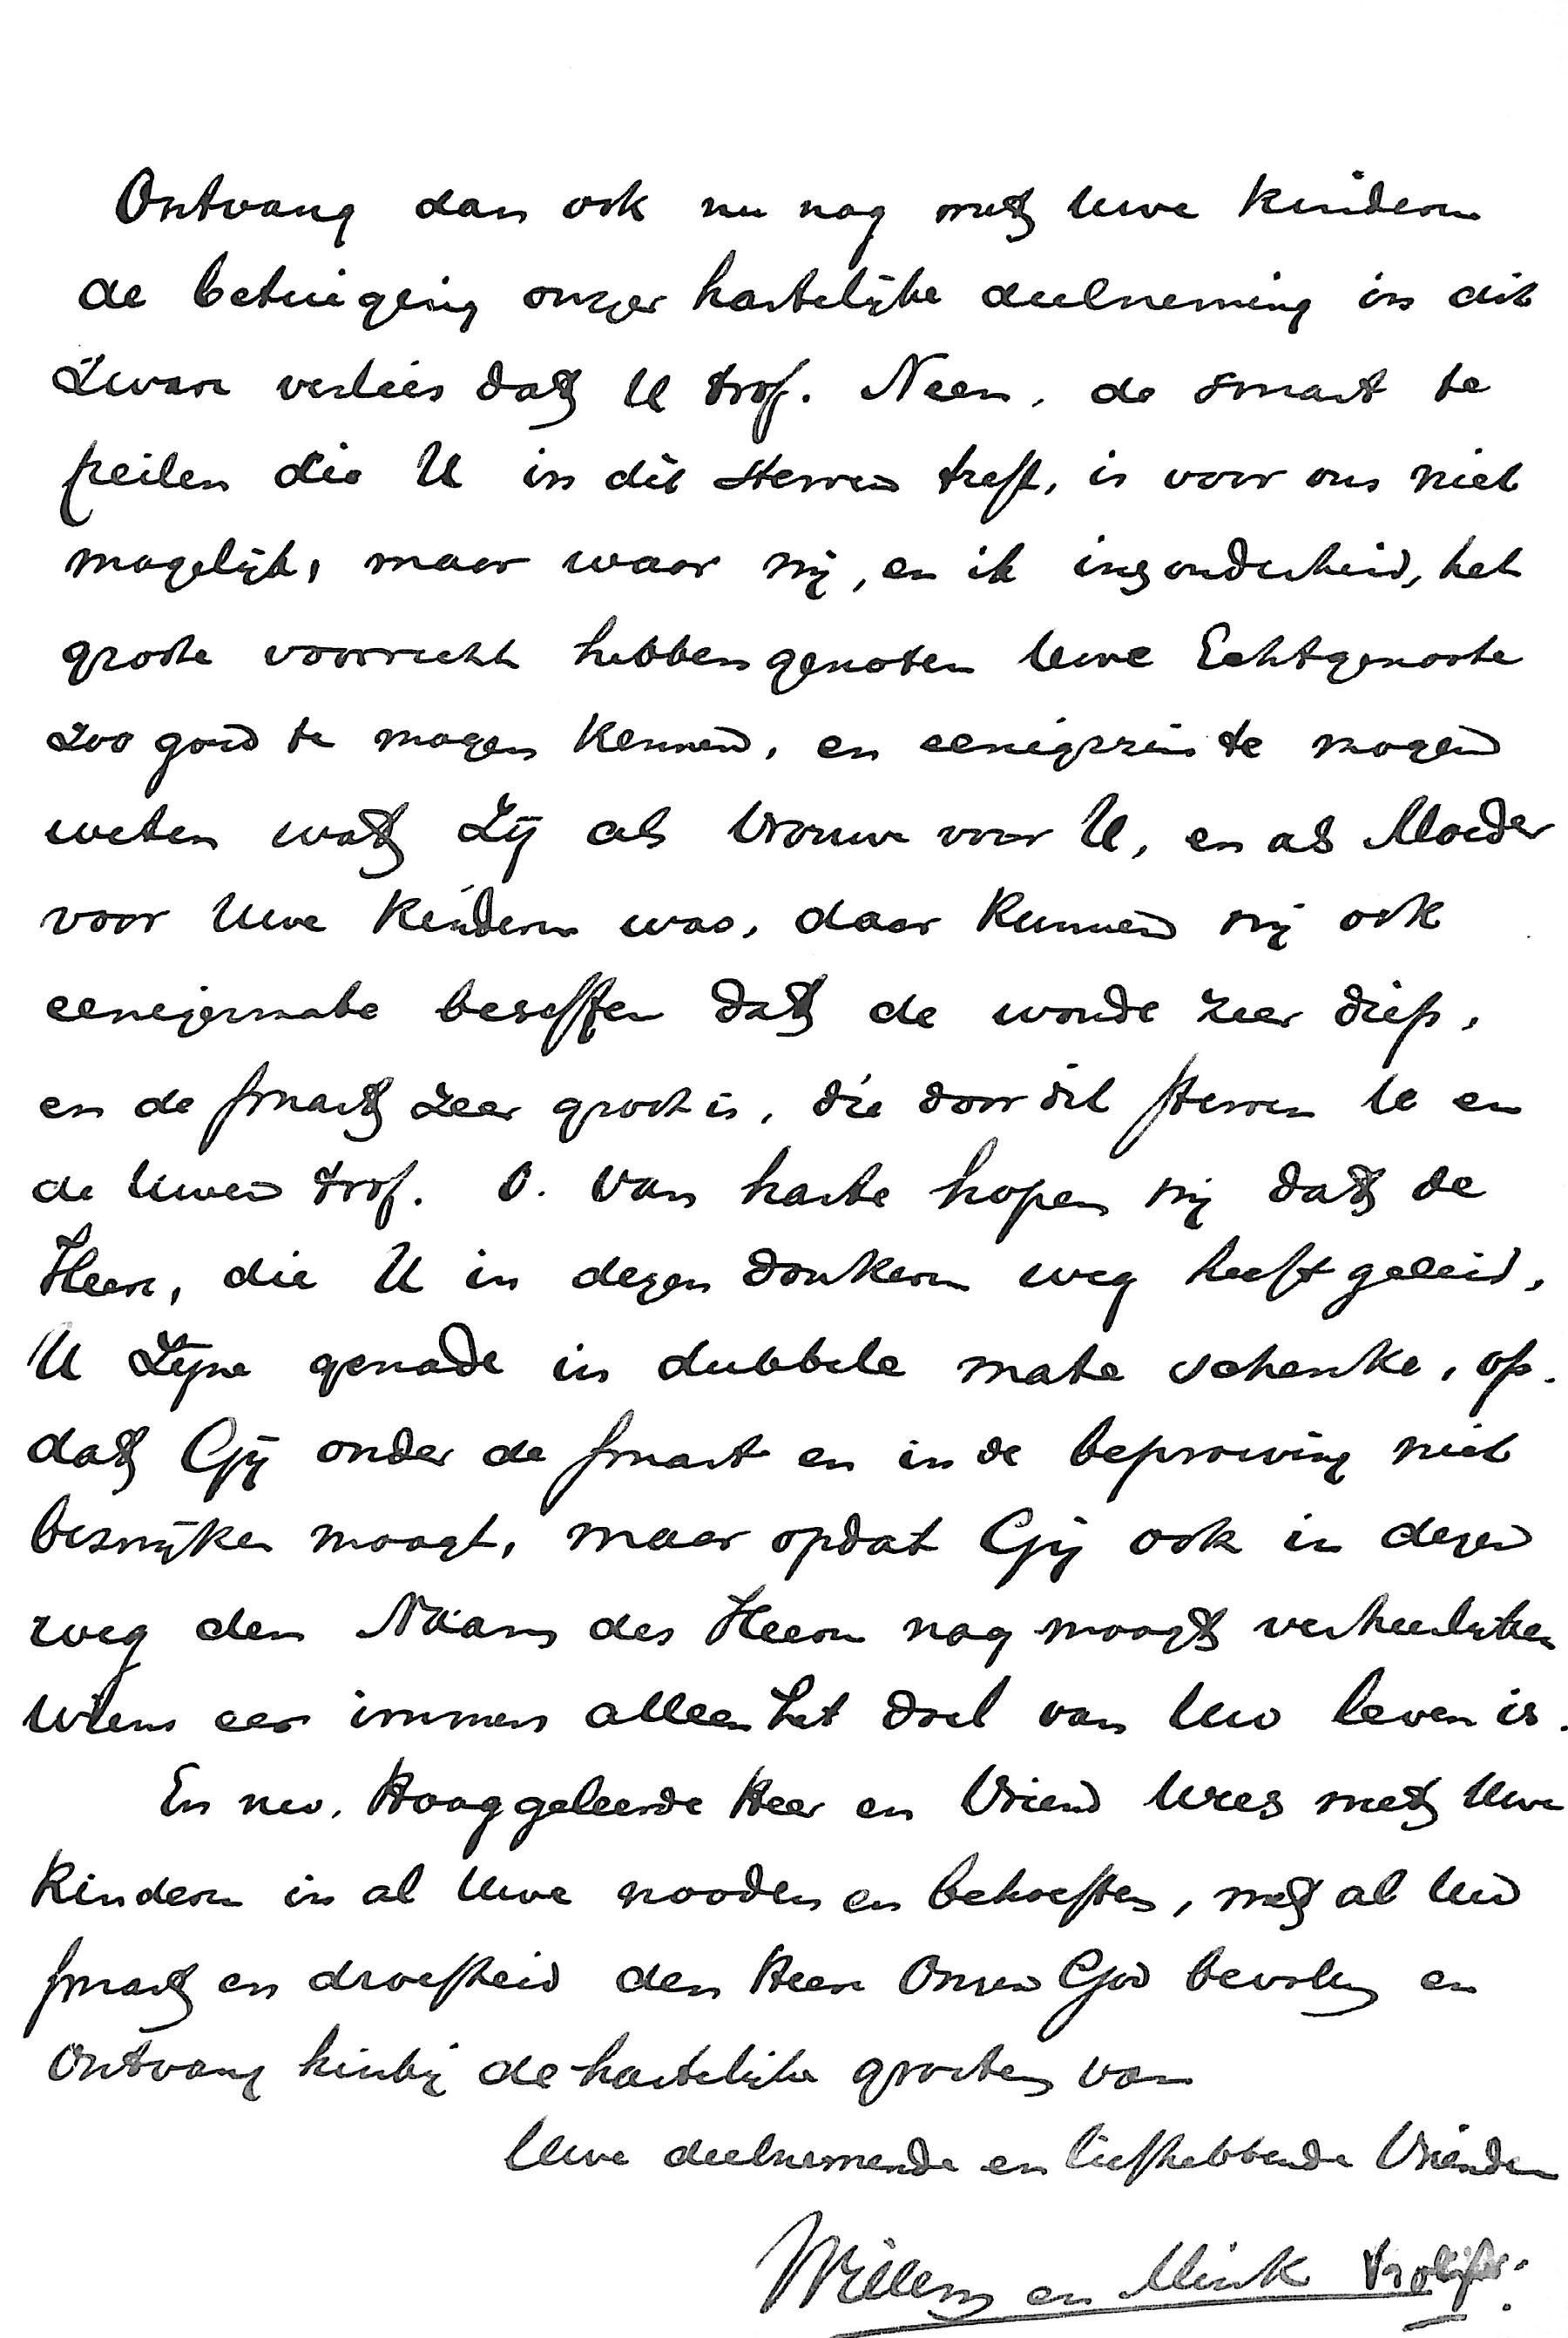 Ontvang dan ook nu nog met Uwe kinderen
de betuiging onzer hartelijke deelneming in dit
zware verlies dat U trof. Neen, de smart te
peilen die U in dit sterven treft, is voor ons niet
mogelijk, maar waar wij, en ik inzonderheid, het
groote voorrecht hebben genoten Uwe Echtgenoote
zoo goed te mogen kennen, en eenigszins te mogen
weten wat Zij als Vrouw voor U, en als Moeder
voor Uwe kinderen was, daar kunnen wij ook
eenigermate beseffen dat de wonde zeer diep,
en de smart zeer groot is, die door dit sterven U en
de Uwen trof. O. Van harte hopen wij dat de
Heere, die U in dezen donkeren weg heeft geleid,
U Zijne genade in dubbele mate schenke, op-
dat Gij onder de smart en in de beproeving niet
bezwijken moogt, maar opdat Gij ook in dezen
weg den Naam des Heeren nog moogt verheerlijken
Wiens eer immers alleen het doel van Uw leven is.
En nu, Hooggeleerde Heer en Vriend Wees met Uwe
kinderen in al Uwe nooden en behoeften, met al Uw
smart en droefheid den Heere Onzen God bevolen en
Ontvang hierbij de hartelijke groeten van
Uwe deelnemende en liefhebbende Vrienden
Willem en Mink